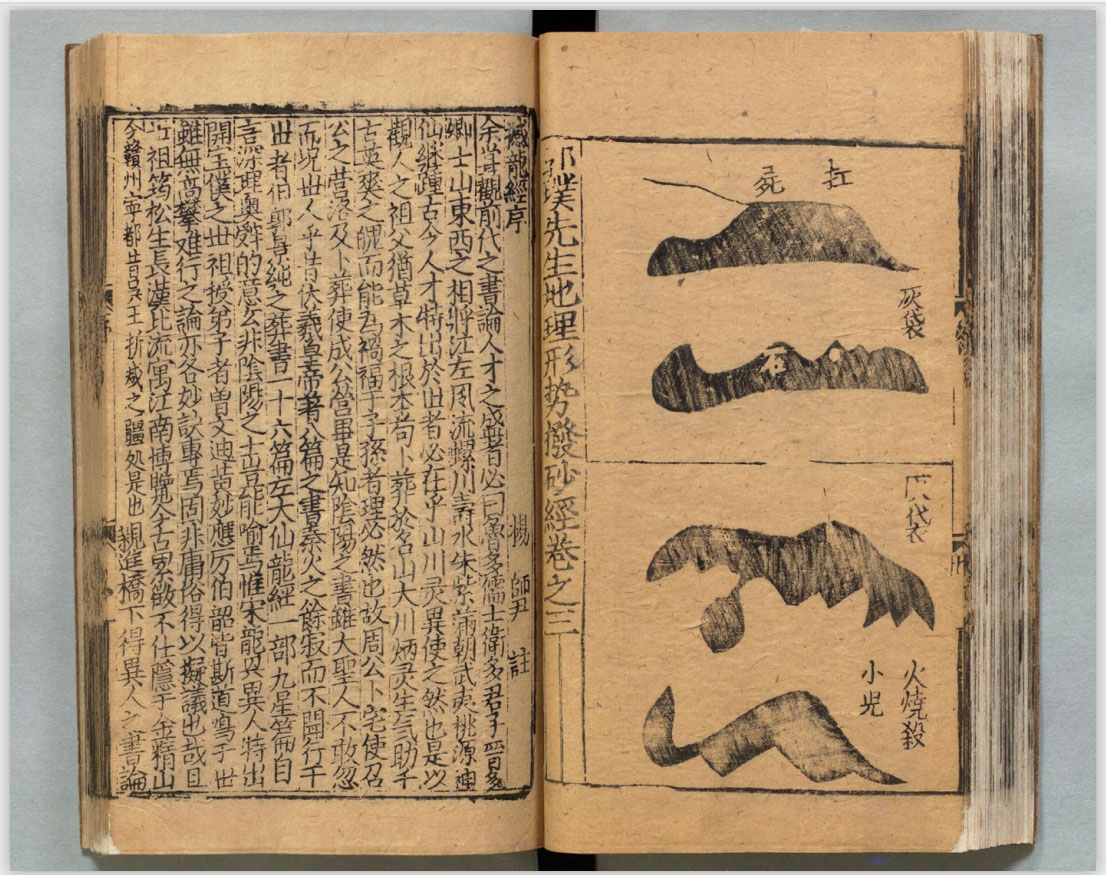 扛屍
灰袋
石
火燒殺
小児
郭璞先生地理形势撥砂經卷之三
撼龍經序 楊 師尹 註
余甞觀前代之書論人才之盛者必曰魯多儒士衛多君子晋多
卿士山東西之相將江左風流螺川壽水朱紫滿朝武夷桃源神
仙継踵古今人才特出於世者必在乎山川灵異使之然也是以
觀人之祖父猶草木之根本苟卜葬於名山大川炳灵生气助千
古英爽之魄而能為禍福于子孫者理必然也故周公卜宅使召
公之营洛及卜葬使成公营畢是知陰陽之書雖大聖人不敢忽
而况世人乎昔伏羲皇帝著八篇之書秦火之餘寂而不聞行于
世者怕郭景純之葬書一十六篇左大仙龍經一部九星篇自
言深理奥辭的意玄非陰陽之士豈能喻焉惟宋龍興異人特出
開玉僕之世祖授弟子者曽文迪苦妙應厉伯韶皆斯道鳴于世
雖無高攀难行之論亦各妙訣專焉固非庸俗得以擬議也哉且
祖筠松生長漢北流寓江南博覽今古累徵不仕隐于金精山
今贛州寧都昔吴王折減之疆処是也 親進橋下得異人之書論